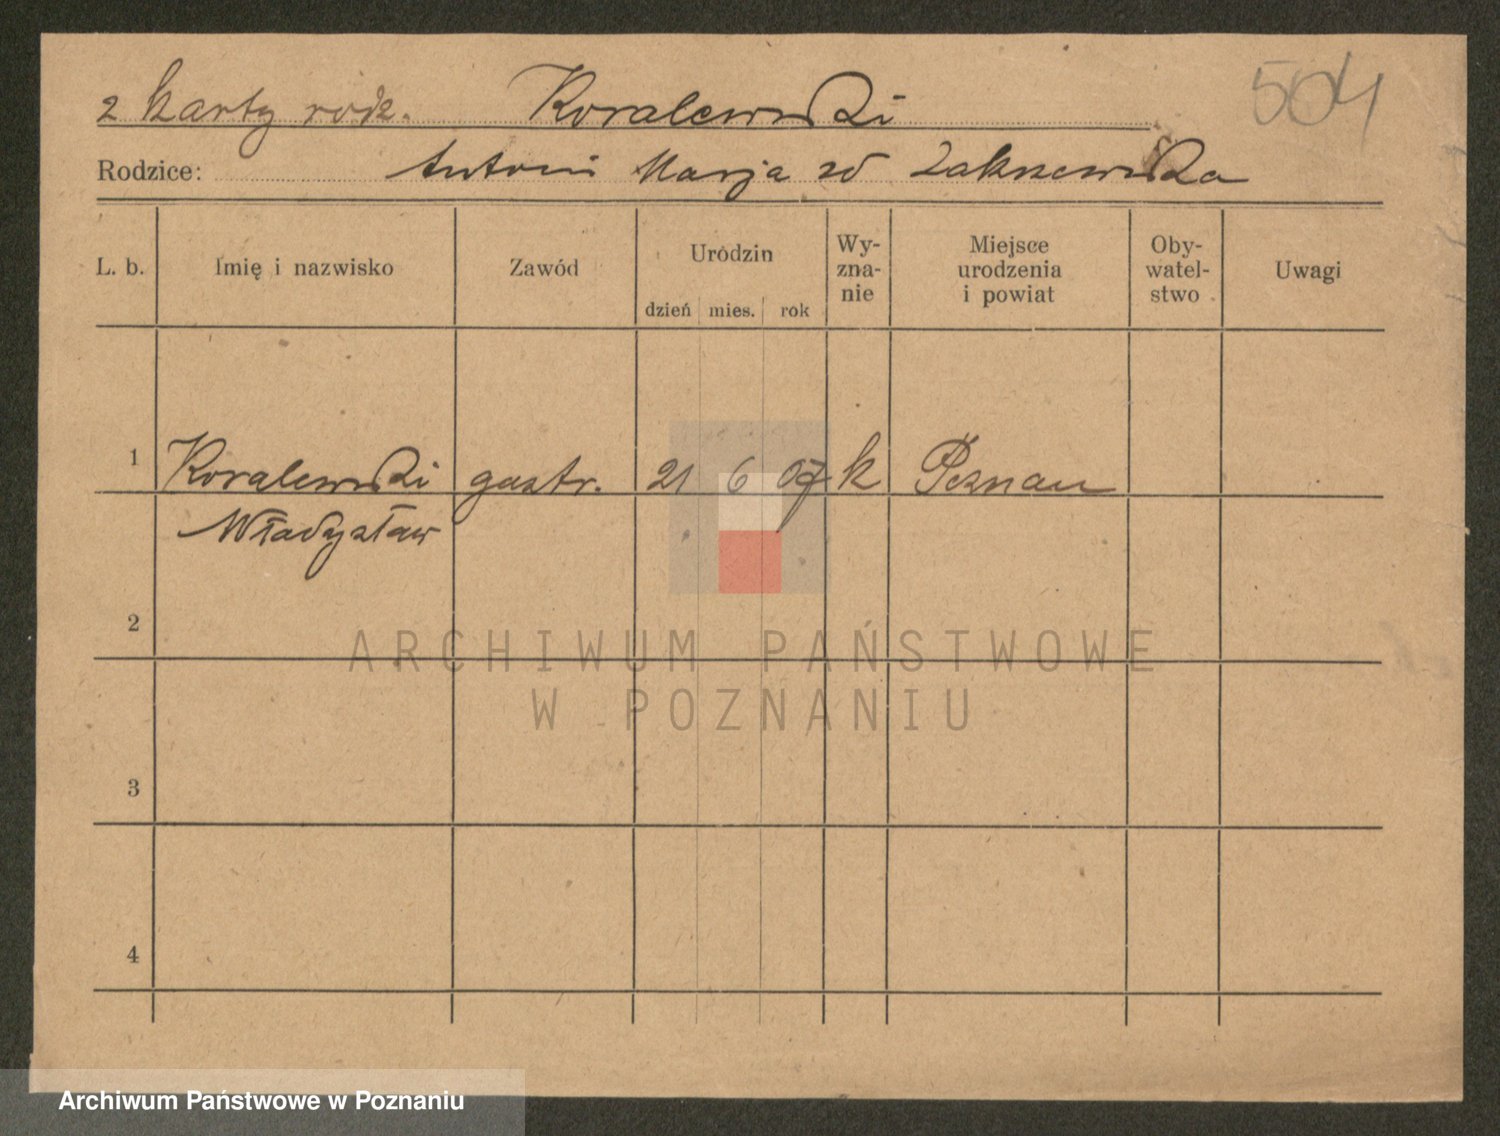 2 karty rodz. Koralewski 504
Rodzice: Antoni Marja zd
L. b. Imię i nazwisko Zawód Urodzin dzień mies. rok Wy-zna-nie Miejsce urodzenia i powiat Oby-watel-stwo Uwagi
1 Koralewski gastr. 21 6 07 k Poznan
Władysław
2
ARCHIWUM PAŃSTWOWE
W POZNANIU
3
4
Archiwum Państwowe w Poznaniu